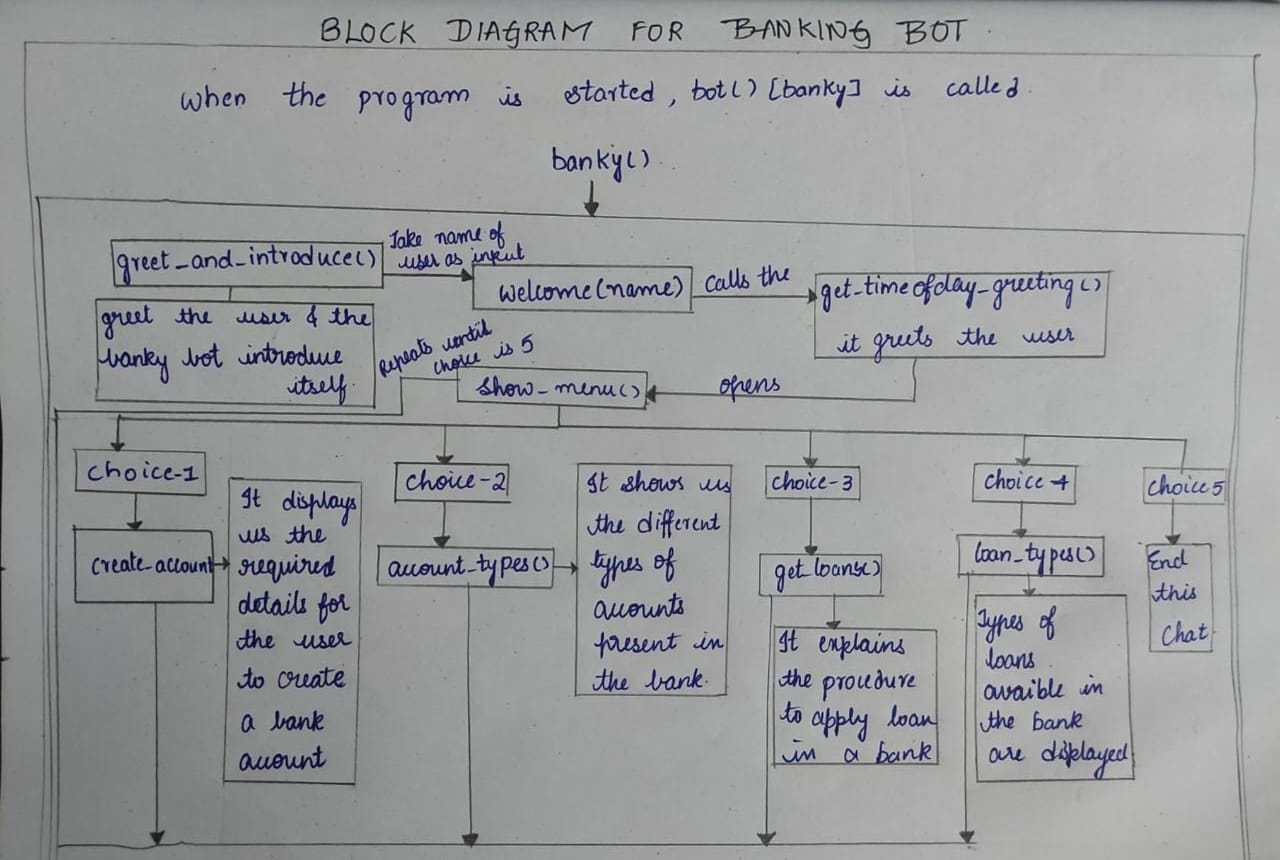 BLOCK DIAGRAM FOR BANKING BOT
when the program is started, bot() [banky] is called.
banky()
greet_and_introduce()
Take name of
user as input
welcome(name)
calls the
get_timeofday_greeting()
it greets the user
greet the user & the
banky bot introduce
itself.
Repeats until
choice is 5
show_menu()
opens
choice-1
create_account
It displays
us the
required
details for
the user
to create
a bank
account
choice-2
account_types()
It shows us
the different
types of
accounts
present in
the bank.
choice-3
get_loans()
It explains
the procedure
to apply loan
in a bank
choice-4
loan_types()
Types of
loans
avaible in
the bank
are displayed
choice 5
End
this
chat